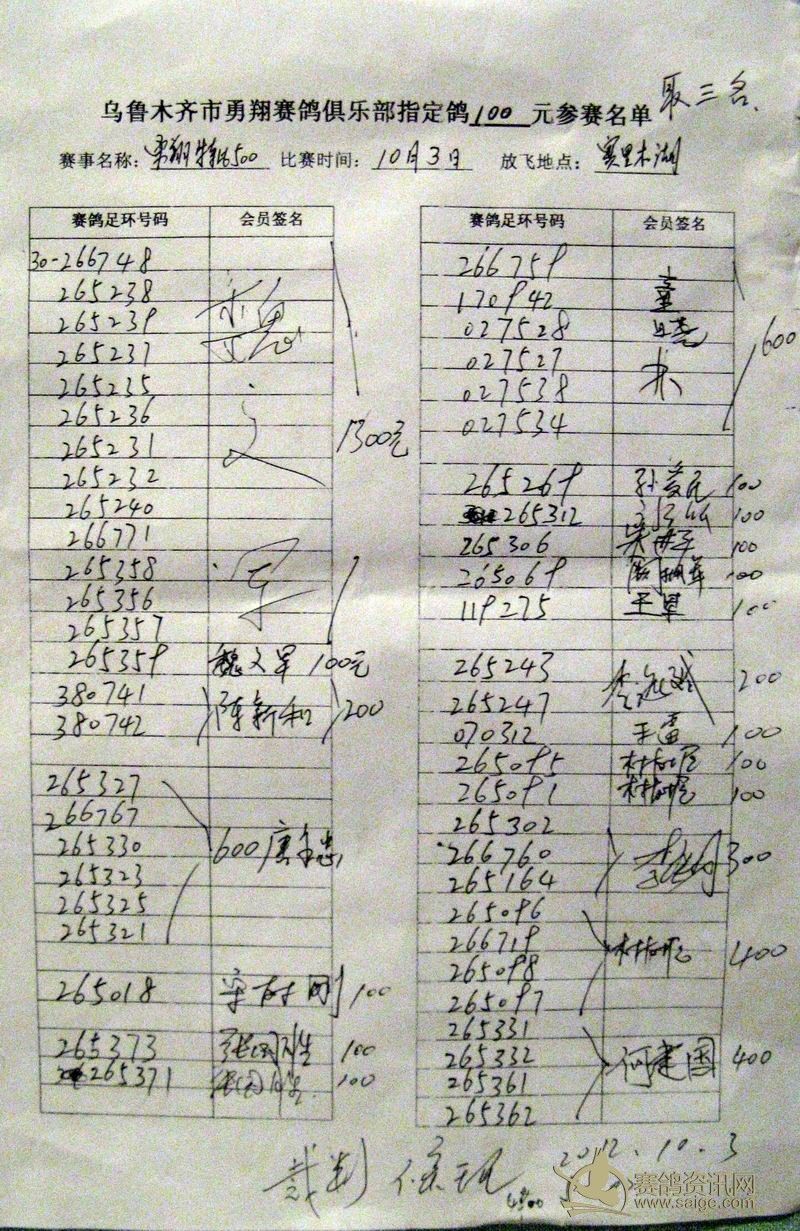 取三名
乌鲁木齐市勇翔赛鸽俱乐部指定鸽100元参赛名单
赛事名称: 500 比赛时间: 10月3日 放飞地点: 赛里木湖
赛鸽足环号码 会员签名
30-266748
265238
265239
265237
265235
265236
265231
265232
265240
266771
265358
265356
265357
1300元
265359 魏文军 100元
380741
380742 陈新和 200
265327
266767
265330 600 唐
265323
265325
265321
265018 刚 100
265373 张国胜 100
265371 张国胜 100
赛鸽足环号码 会员签名
266759
170942
027528
027527
027538
027534
600
265269 孙 100
265312 100
265306 100
265069 100
119275 王军 100
265243
265247 200
070312 王雷 100
265095 100
265091 100
265302
266760 300
265164
265096
266719
265098 400
265097
265331
265332 何建国 400
265361
265362
裁判 2012.10.3
赛鸽资讯网
www.saige.com